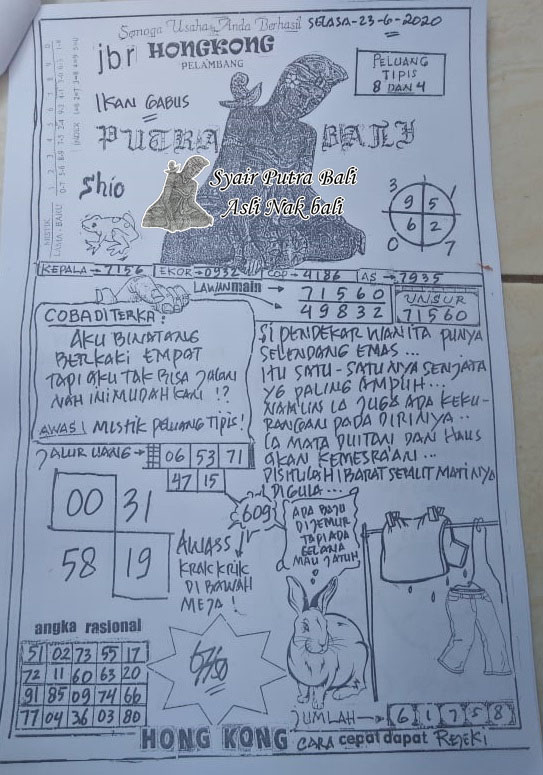 Semoga Usaha Anda Berhasil SELASA-23-6-2020
jbr HONGKONG
PELAMBANG
PELUANG
TIPIS
8 DAN 4
IKAN GABUS
PUTRA BALI
Syair Putra Bali
Asli Nak bali
Shio
MISTIK
LAMA BARU
INDEX
3 1
9 5
6 2
0 7
KEPALA→7156 EKOR→0932 COP→4186 AS→7935
LAWANmain → 71560
49832
UNSUR
71560
COBA DI TERKA!
AKU BINATANG
BERKAKI EMPAT
TAPI AKU TAK BISA JALAN
NAH INI MUDAH KAN !?
AWAS! MISTIK PELUANG TIPIS!
SI PENDEKAR WANITA PUNYA
SELENDANG EMAS...
ITU SATU-SATUNYA SENJATA
YG PALING AMPUH...
NAMUN IA JUGA ADA KEKU-
RANGAN PADA DIRINYA..
IA MATA DUITAN DAN HAUS
AKAN KEMESRA'AN...
DISITULAH IBARAT SEMUT MATINYA
DI GULA...
JALUR UANG→ 06 53 71
47 15
00 31
58 19
609
AWASS
KRAK KRIK
DI BAWAH
MEJA!
ADA BAJU
DI JEMUR
TAPI ADA
CELANA
MAU JATUH
angka rasional
51 02 73 55 17
72 11 60 63 20
91 85 09 74 66
77 04 36 03 80
JUMLAH→ 6 1 7 5 8
HONG KONG CARA cepat dapat REJEKI